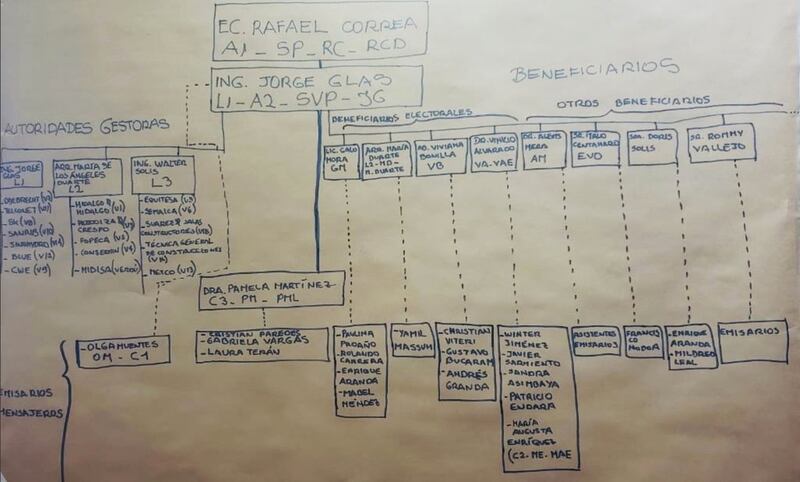 EC. RAFAEL CORREA
A1 _ SP _ RC _ RCD
ING. JORGE GLAS
L1 - A2 - SVP - JG
BENEFICIARIOS
BENEFICIARIOS ELECTORALES
OTROS BENEFICIARIOS
LIC. GALO
MORA
GM
ARQ. MARÍA
DUARTE
L2 - MD -
M. DUARTE
AB. VIVIANA
BONILLA
VB
DR. VINICIO
ALVARADO
VA. VAE
DR. ALEXIS
MERA
AM
SR. ITALO
EVO
SRA. DORIS
SOLIS
SR. ROMMY
VALLEJO
AUTORIDADES GESTORAS
ING. JORGE
GLAS
L1
ARQ. MARÍA DE
LOS ÁNGELES
DUARTE
L2
ING. WALTER
SOLIS
L3
ODEBRECHT
TELCONET
- SK (V8)
- SANRIB
- SINOHYDRO
- BLUE (V12)
- CWE (V9)
- HIDALGO E
HIDALGO (V1)
CRESPO
- FOPECA (V2)
- CONSERMIN (V4)
- MIDISA
- EQUITESA (V3)
- SEMAICA (V6)
- SUAREZ & SALAS
CONSTRUCTORES
- TÉCNICA GENERAL
DE CONSTRUCCIONES
- METCO (V13)
DRA. PAMELA MARTÍNEZ
C3 _ PM _ PML
EMISARIOS
MENSAJEROS
- OLGA MUENTES
OM - C1
- CRISTIAN PAREDES
- GABRIELA VARGAS
- LAURA TERÁN
- PAULINA
PROAÑO
- ROLANDO
CABRERA
- ENRIQUE
ARANDA
- MABEL
MÉNDEZ
- YAMIL
MASSUH
- CHRISTIAN
VITERI
- GUSTAVO
BUCARAM
- ANDRÉS
GRANDA
- WINTER
JIMÉNEZ
- JAVIER
SARMIENTO
- SANDRA
ASIMBAYA
- PATRICIO
ENDARA
- MARÍA
AUGUSTA
ENRÍQUEZ
(C2. ME. MAE
ASISTENTES
EMISARIOS
FRANCIS
CO
- ENRIQUE
ARANDA
- MILDRED
LEAL
EMISARIOS